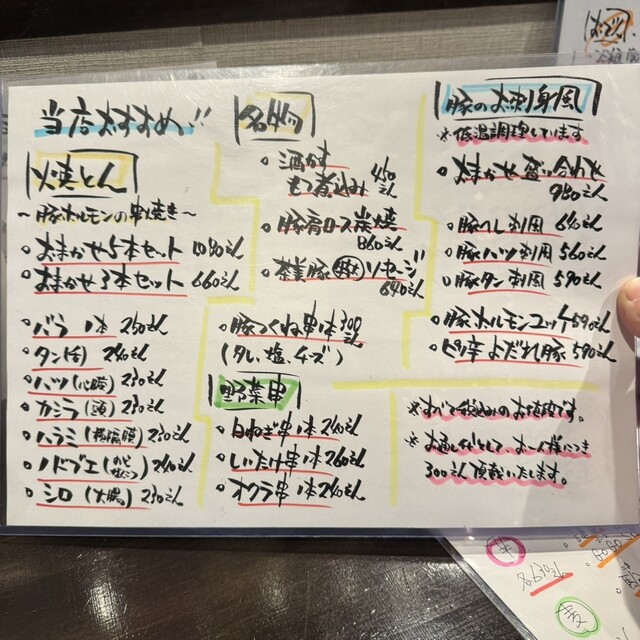 当店おすすめ!!
焼とん
～豚ホルモンの串焼き～
・おまかせ5本セット 1080えん
・おまかせ3本セット 660えん
・バラ 1本 250えん
・タン(舌) 240えん
・ハツ(心臓) 230えん
・カシラ(頭) 230えん
・ハラミ(横隔膜) 230えん
・ノドブエ 240えん
・シロ(大腸) 230えん
名物
・酒かす
もつ煮込み 450えん
・豚肩ロース炭焼
860えん
・茶美豚 ソーセージ
640えん
・豚つくね串1本
(タレ、塩、チーズ)
野菜串
・白ねぎ串1本 240えん
・しいたけ串1本 260えん
・オクラ串1本 240えん
豚のお刺身風
※低温調理しています
・おまかせ盛り合わせ
980えん
・豚ヘレ刺風 640えん
・豚ハツ刺風 560えん
・豚タン刺風 590えん
・豚ホルモンユッケ 590えん
・ピリ辛よだれ豚 590えん
※すべて税込みのお値段です。
※お通し代として、お一人様につき
300えん頂戴いたします。